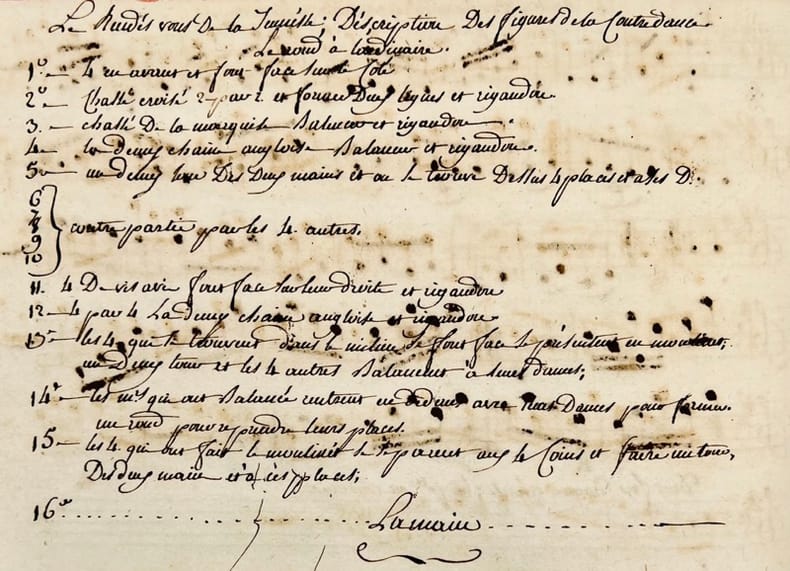 Le Rendés vous De la Jeunésse. Déscripture Des figures de la Contredance
Le rond à lordinaire.
1º 4 en avant et font face sur le Coté
2º Chassé croisé 2 par 2 et former Deux lignes et rigaudon.
3. chassé De la marquise Balancer et rigaudon.
4e la demy chaine angloise Balancer et rigaudon.
5e un demy tour Des Deux mains et on se trouve Dessus 4 places et a ses D.
6
7
8
9
10
contre partie par les 4 autres.
11. 4 De vis avie font face sur leur droite et rigaudon
12 4 par 4 La demy chaine angloise et rigaudon
13e les 4 qui se trouvent dans le milieu se font face se présentent en moulinet,
un Demy tour et les 4 autres Balancent à leurs dames,
14e les mrs qui ont Balancé entrent en dedans avec leurs Dames pour former
un rond pour reprendre leurs places.
15 les 4 qui ont fait le moulinet se séparent aux 4 Coins et faire un tour,
Des deux main et à ses places,
16e La main